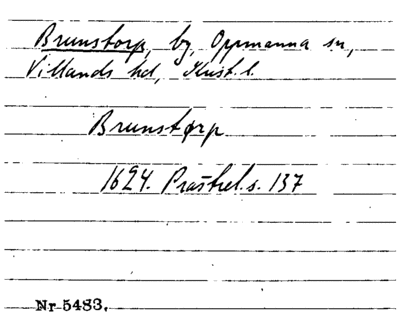 Brunstorp, by, Oppmanna sn,
Villands hd, Krist. l.
Brunstørp
1624. Prästrel. s. 137
Nr 5483.